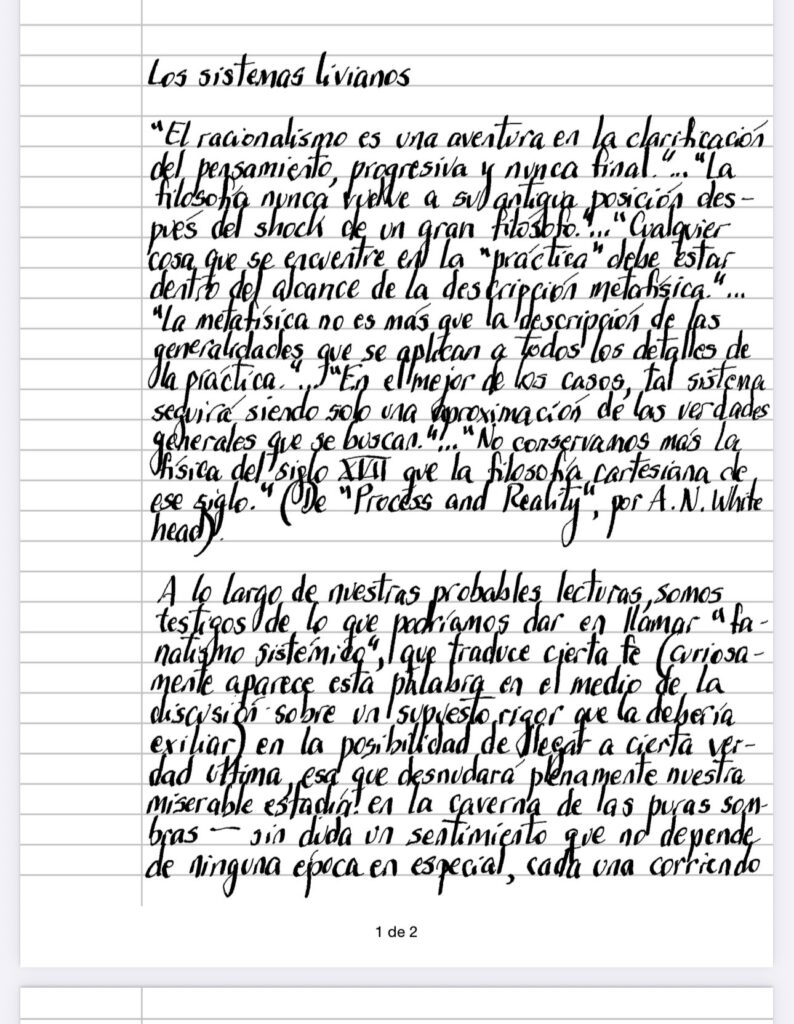 Los sistemas livianos
"El racionalismo es una aventura en la clarificación
del pensamiento, progresiva y nunca final."..."La
filosofía nunca vuelve a su antigua posición des-
pués del shock de un gran filósofo."..."Cualquier
cosa que se encuentre en la "práctica" debe estar
dentro del alcance de la descripción metafísica."...
"La metafísica no es más que la descripción de las
generalidades que se aplican a todos los detalles de
la práctica."..."En el mejor de los casos, tal sistema
seguirá siendo solo una aproximación de las verdades
generales que se buscan."..."No conservamos más la
física del siglo XVII que la filosofía cartesiana de
ese siglo." (De "Process and Reality", por A.N. White
head).
A lo largo de nuestras probables lecturas, somos
testigos de lo que podríamos dar en llamar "fa-
natismo sistémico", que traduce cierta fe (curiosa-
mente aparece esta palabra en el medio de la
discusión sobre un supuesto rigor que la debería
exiliar) en la posibilidad de llegar a cierta ver-
dad última, esa que desnudará plenamente nuestra
miserable estadía en la caverna de las puras som-
bras — sin duda un sentimiento que no depende
de ninguna época en especial, cada una corriendo
1 de 2